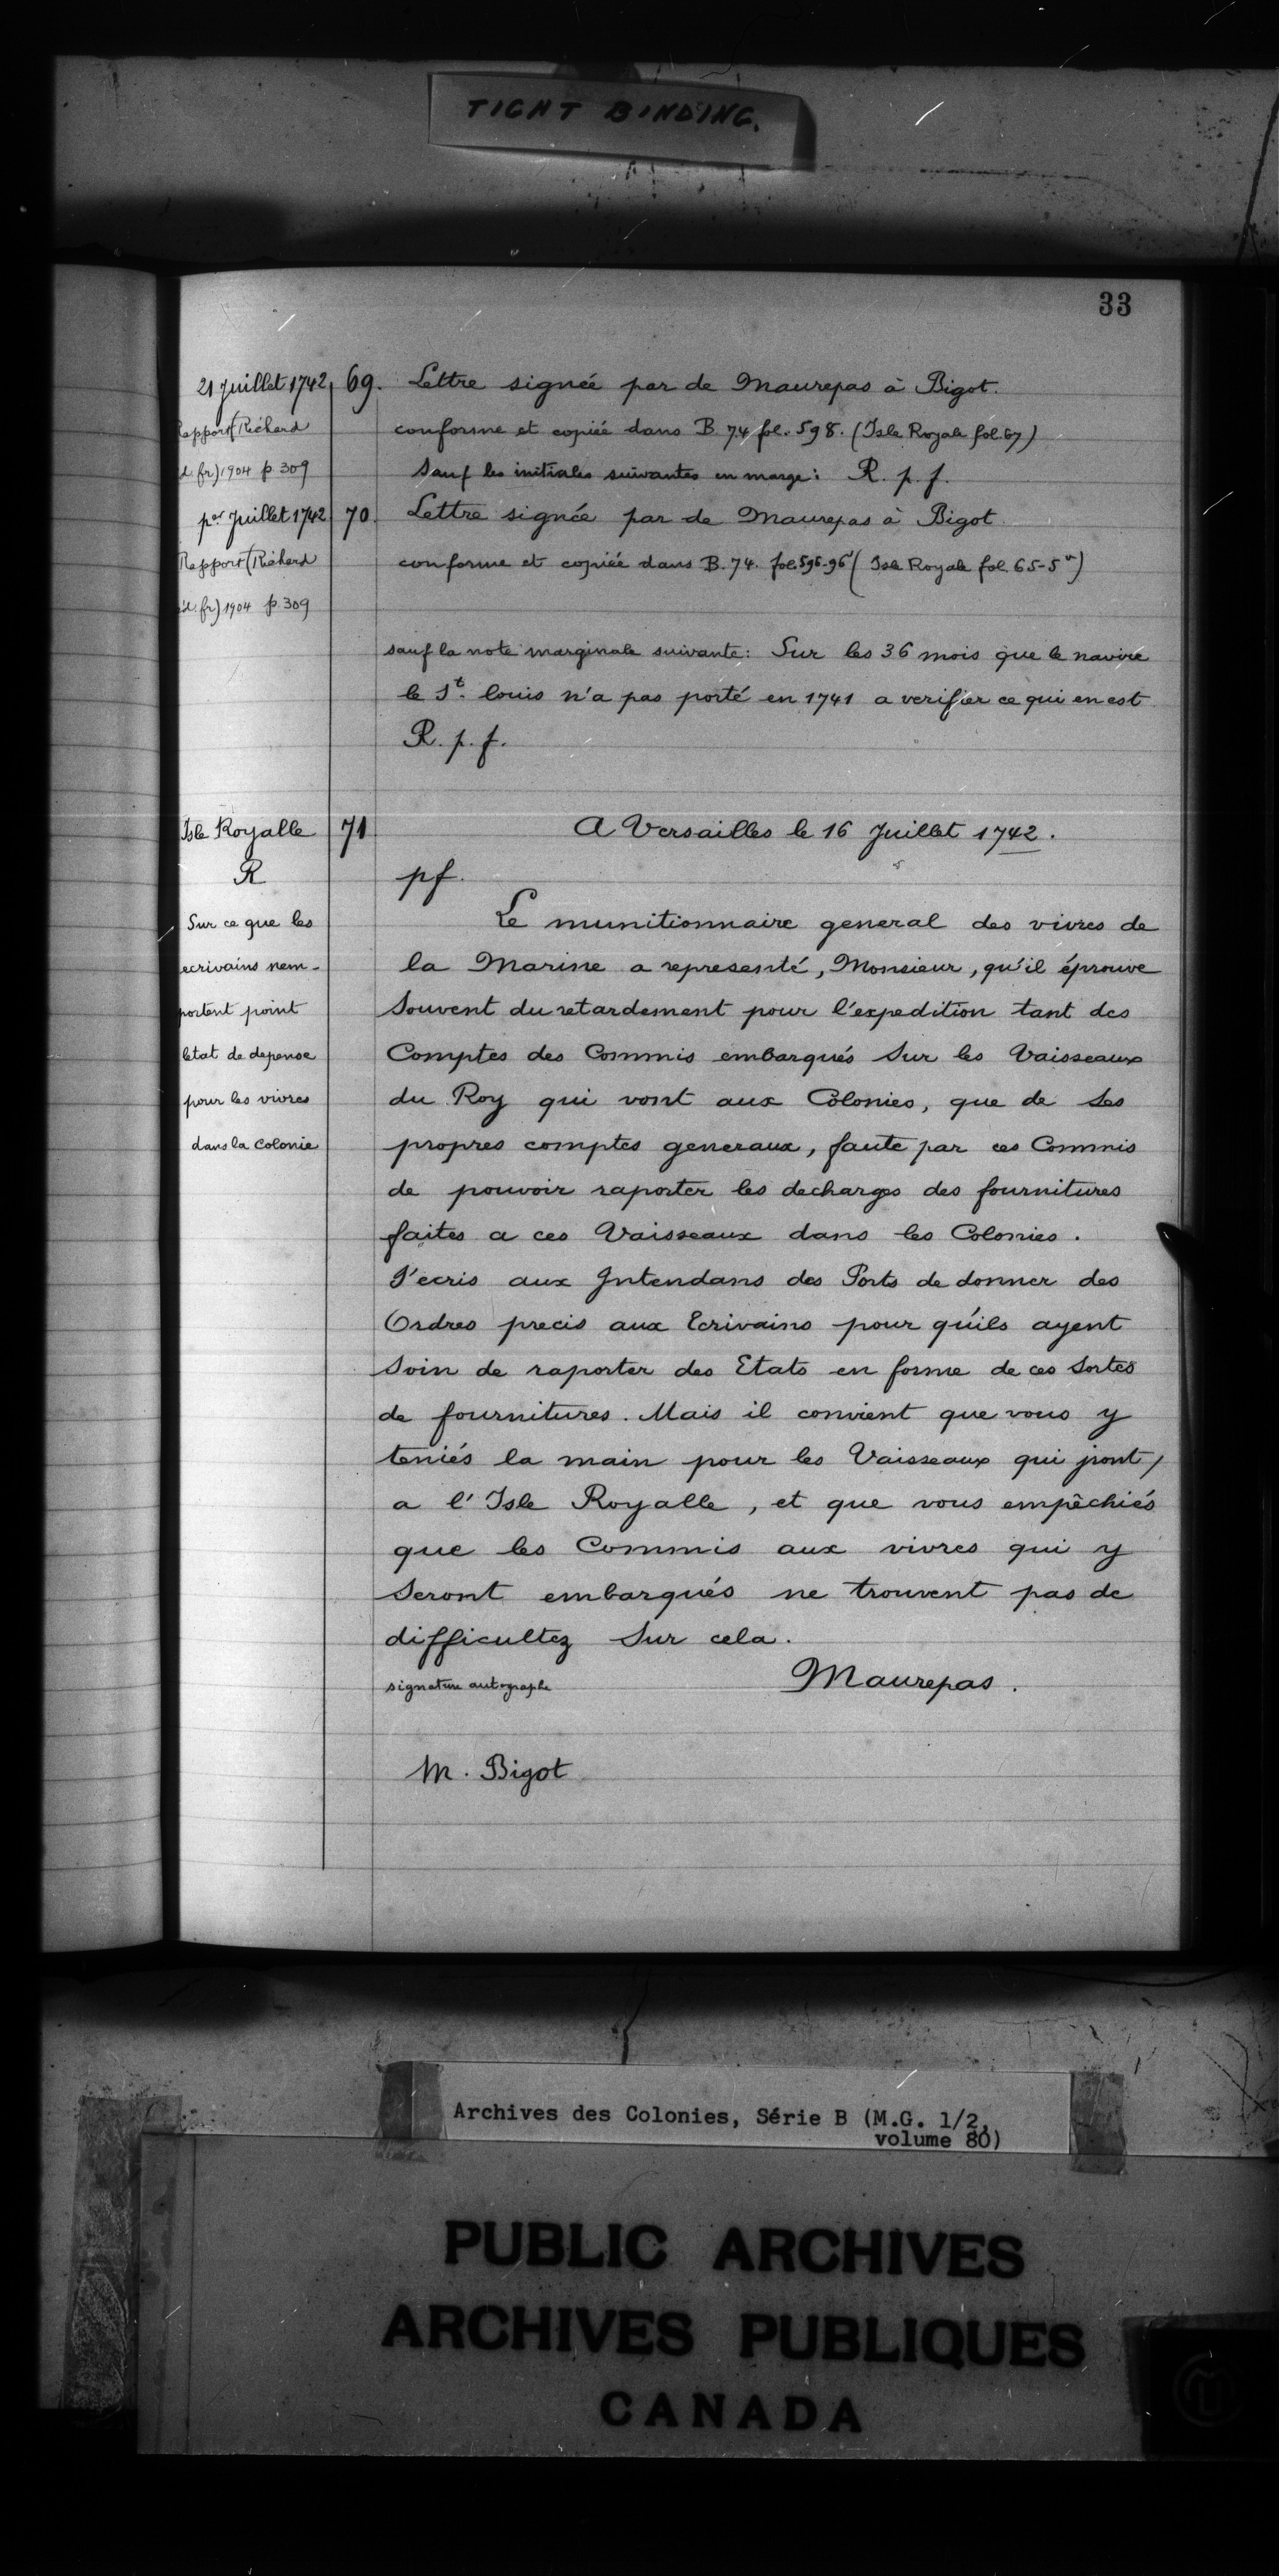 TIGHT BINDING.
33
21 Juillet 1742 69. Lettre signée par de Maurepas à Bigot.
Rapport (Richard conforme et copiée dans B. 74 fol. 598. (Isle Royale fol. 67)
d. fr) 1904 p. 309 Sauf les initiales suivantes en marge: R. p. f.
per Juillet 1742 70. Lettre signée par de Maurepas à Bigot
Rapport (Richard conforme et copiée dans B. 74. fol. 595-96 (Isle Royale fol. 65-5v)
éd. fr) 1904 p. 309
sauf la note marginale suivante: Sur les 36 mois que le navire
le St. louis n'a pas porté en 1741 a verifier ce qui en est
R. p. f.
Isle Royalle 71 A Versailles le 16 Juillet 1742.
R pf.
Sur ce que les Le munitionnaire general des vivres de
ecrivains nem- la Marine a representé, Monsieur, qu'il éprouve
portent point Souvent du retardement pour l'expedition tant des
letat de depense Comptes des Commis embarqués Sur les Vaisseaux
pour les vivres du Roy qui vont aux Colonies, que de Ses
dans la colonie propres comptes generaux, faute par ces Commis
de pouvoir raporter les decharges des fournitures
faites a ces Vaisseaux dans les Colonies.
J'ecris aux Intendans des Ports de donner des
Ordres precis aux Ecrivains pour qu'ils ayent
Soin de raporter des Etats en forme de ces Sortes
de fournitures. Mais il convient que vous y
teniés la main pour les Vaisseaux qui jront,
a l'Isle Royalle, et que vous empêchiés
que les Commis aux vivres qui y
Seront embarqués ne trouvent pas de
difficultez Sur cela.
signature autographe Maurepas.
M. Bigot
Archives des Colonies, Série B (M.G. 1/2,
volume 80)
PUBLIC ARCHIVES
ARCHIVES PUBLIQUES
CANADA